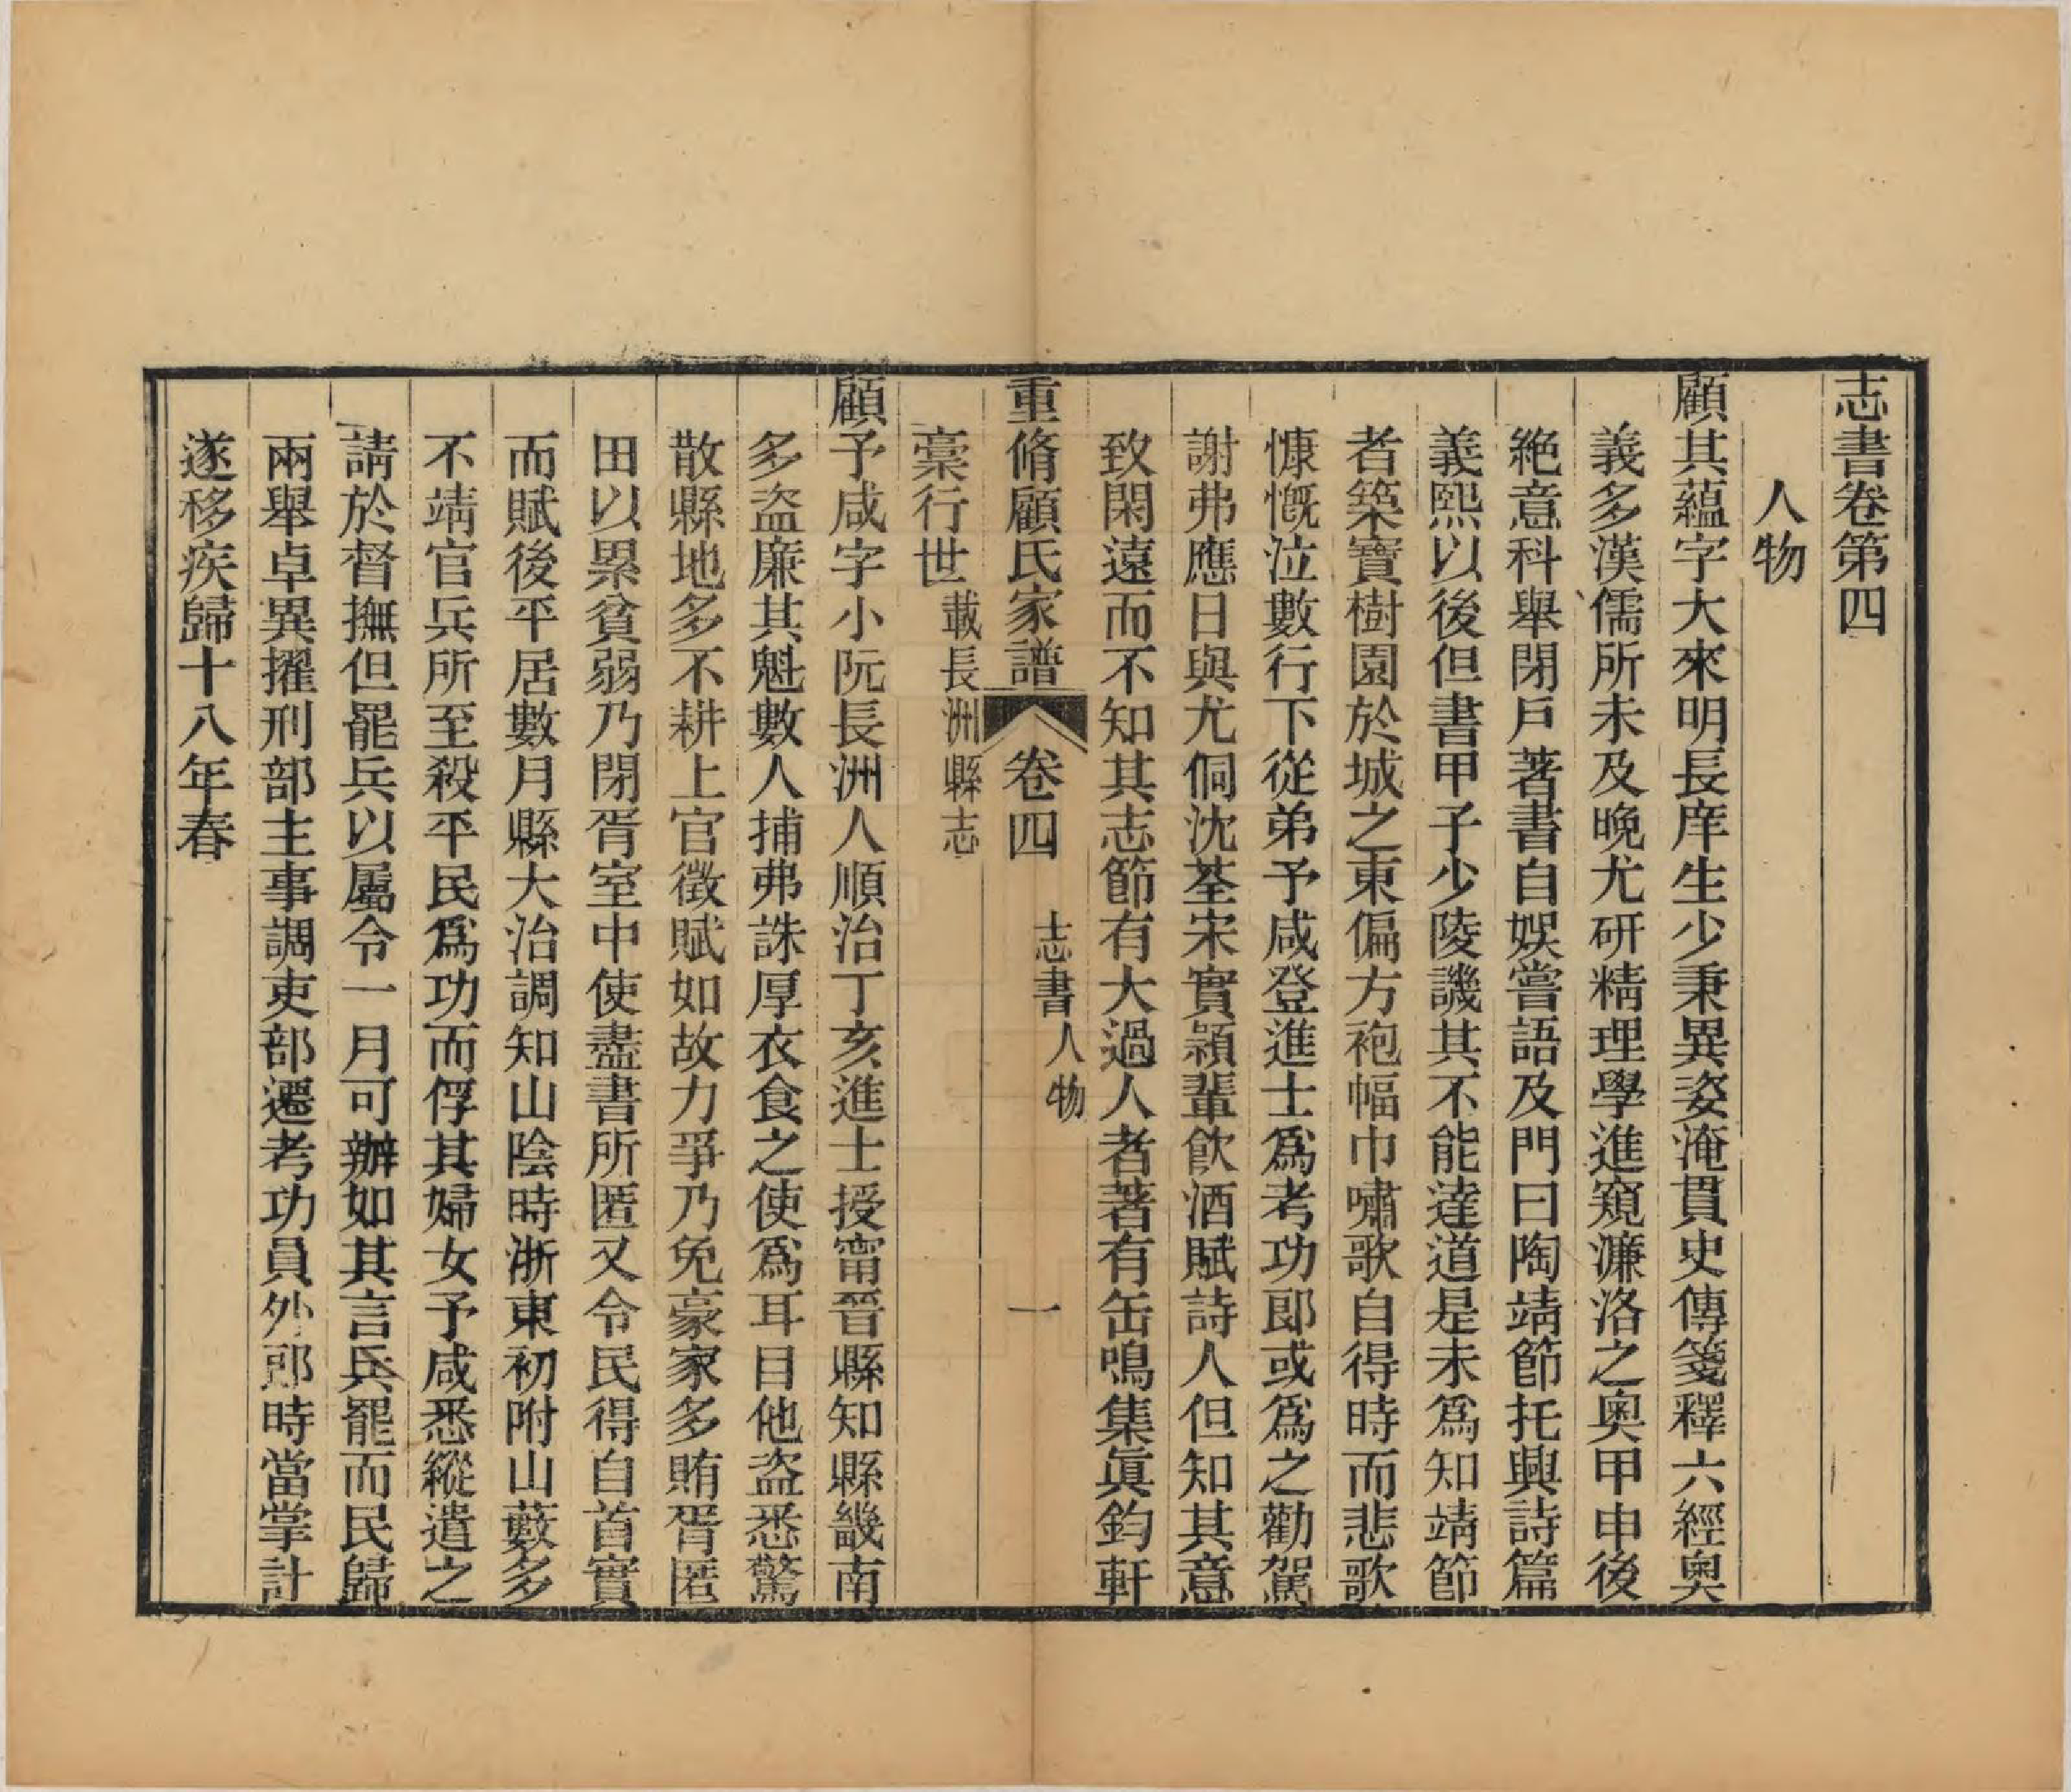 志書卷第四
人物
顧其蘊字大來明長庠生少秉異姿淹貫史傳箋釋六經奧
義多漢儒所未及晚尤硏精理學進窺濂洛之奧甲申後
絶意科舉閉戸著書自娛嘗語及門曰陶靖節托興詩篇
義熙以後但書甲子少陵譏其不能達道是未爲知靖節
者築寶樹園於城之東偏方袍幅巾嘯歌自得時而悲歌
慷慨泣數行下從弟予咸登進士爲考功郎或爲之勸駕
謝弗應日與尤侗沈荃宋實穎輩飮酒賦詩人但知其意
致閑遠而不知其志節有大過人者著有缶鳴集眞鈞軒
重脩顧氏家譜 卷四 志書人物 一
稾行世載長洲縣志
顧予咸字小阮長洲人順治丁亥進士授甯晉縣知縣畿南
多盜廉其魁數人捕弗誅厚衣食之使爲耳目他盜悉驚
散縣地多不耕上官徵賦如故力爭乃免豪家多賄胥匿
田以累貧弱乃閉胥室中使盡書所匿又令民得自首實
而賦後平居數月縣大治調知山陰時浙東初附山藪多
不靖官兵所至殺平民爲功而俘其婦女予咸悉縱遣之
請於督撫但罷兵以屬令一月可辦如其言兵罷而民歸
兩舉卓異擢刑部主事調吏部遷考功員外郎時當掌計
遂移疾歸十八年春